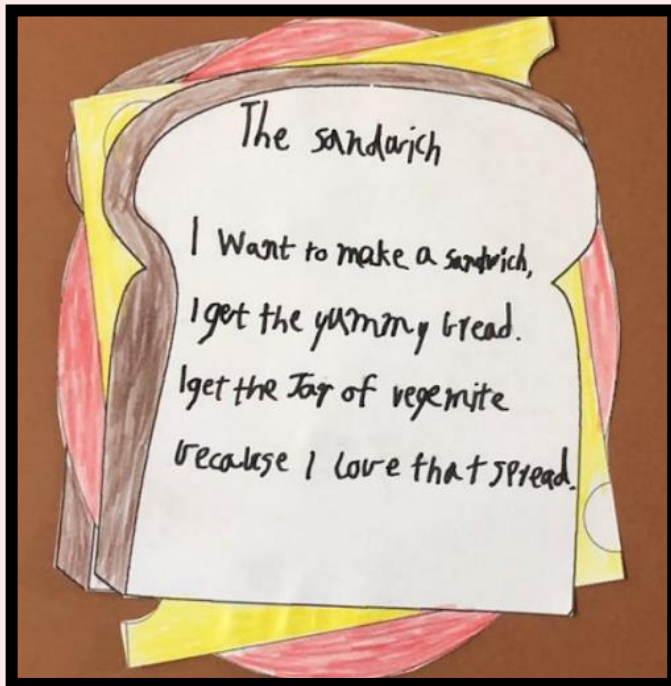 The sandwich
I want to make a sandwich,
I get the yummy bread.
I get the Jar of vegemite
because I love that spread.